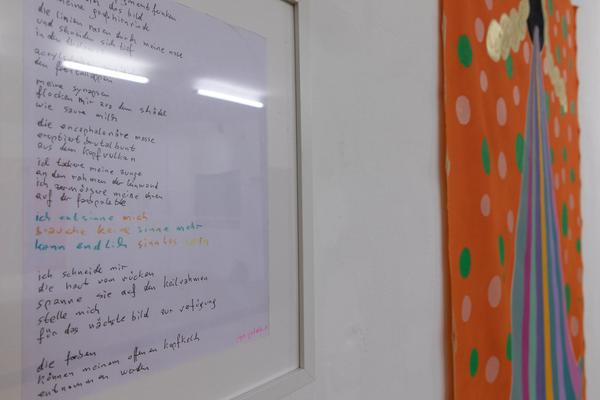 das bild
meine großhirnrinde
die linien rasen durch meine nase
und schneiden sich tief
in den
den
meine synapsen
flocken mir aus dem schädel
wie saure milch
die encephalonäre masse
eruptiert brutalbunt
aus dem kopfvulkan
ich tackere meine zunge
an den rahmen der leinwand
ich zermörsere meine ohren
auf der farbpalette
ich entsinne mich
brauche keine sinne mehr
kann endlich sinnlos sein
ich schneide mir
die haut vom rücken
spanne sie auf den keilrahmen
stelle mich
für das nächste bild zur verfügung
die farben
können meinem offenen kopfkelch
entnommen werden